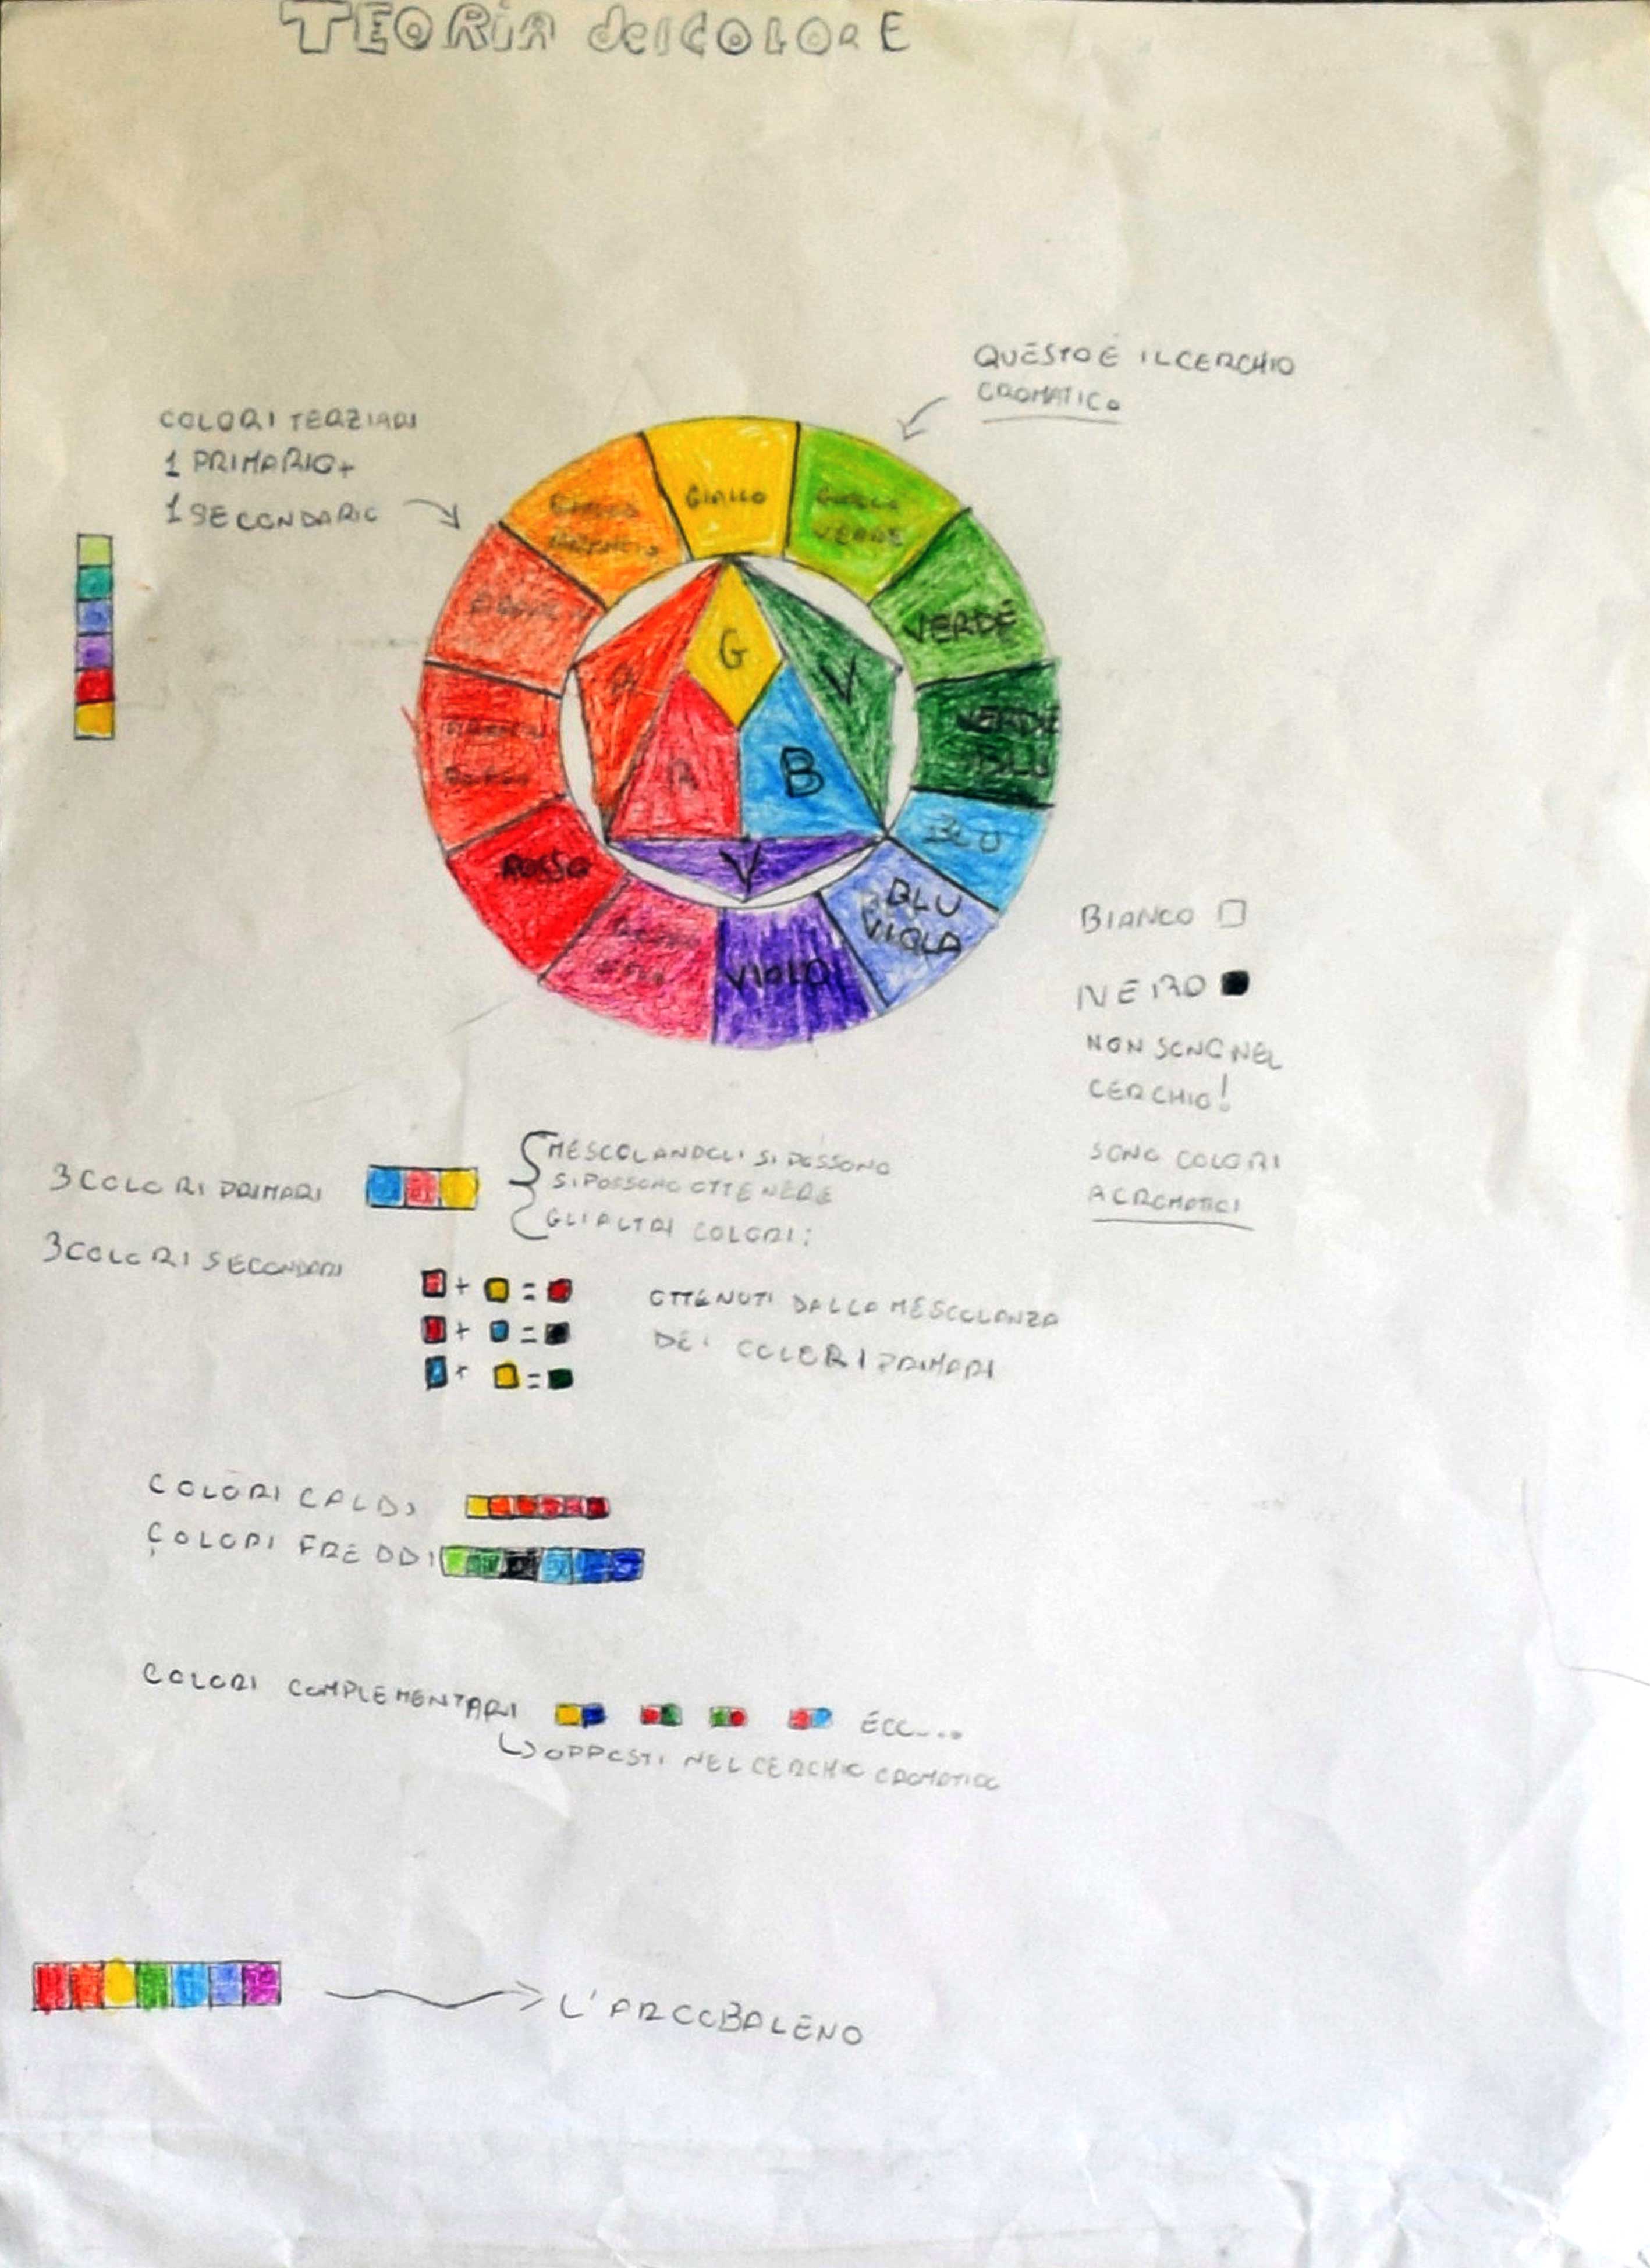 TEORIA del COLORE
QUESTO È IL CERCHIO
CROMATICO
COLORI TERZIARI
1 PRIMARIO +
1 SECONDARIO
GIALLO
ARANCIO
GIALLO
GIALLO
VERDE
ARANCIO
VERDE
ARANCIO
ROSSO
VERDE
BLU
ROSSO
BLU
ROSSO
VIOLA
VIOLA
BLU
VIOLA
G
A
V
R
B
V
BIANCO
NERO
NON SONO NEL
CERCHIO!
SONO COLORI
ACROMATICI
3 COLORI PRIMARI
MESCOLANDOLI SI POSSONO
SI POSSONO OTTENERE
GLI ALTRI COLORI:
3 COLORI SECONDARI
+ =
+ =
+ =
OTTENUTI DALLA MESCOLANZA
DEI COLORI PRIMARI
COLORI CALDI
COLORI FREDDI
COLORI COMPLEMENTARI ECC...
OPPOSTI NEL CERCHIO CROMATICO
L'ARCOBALENO